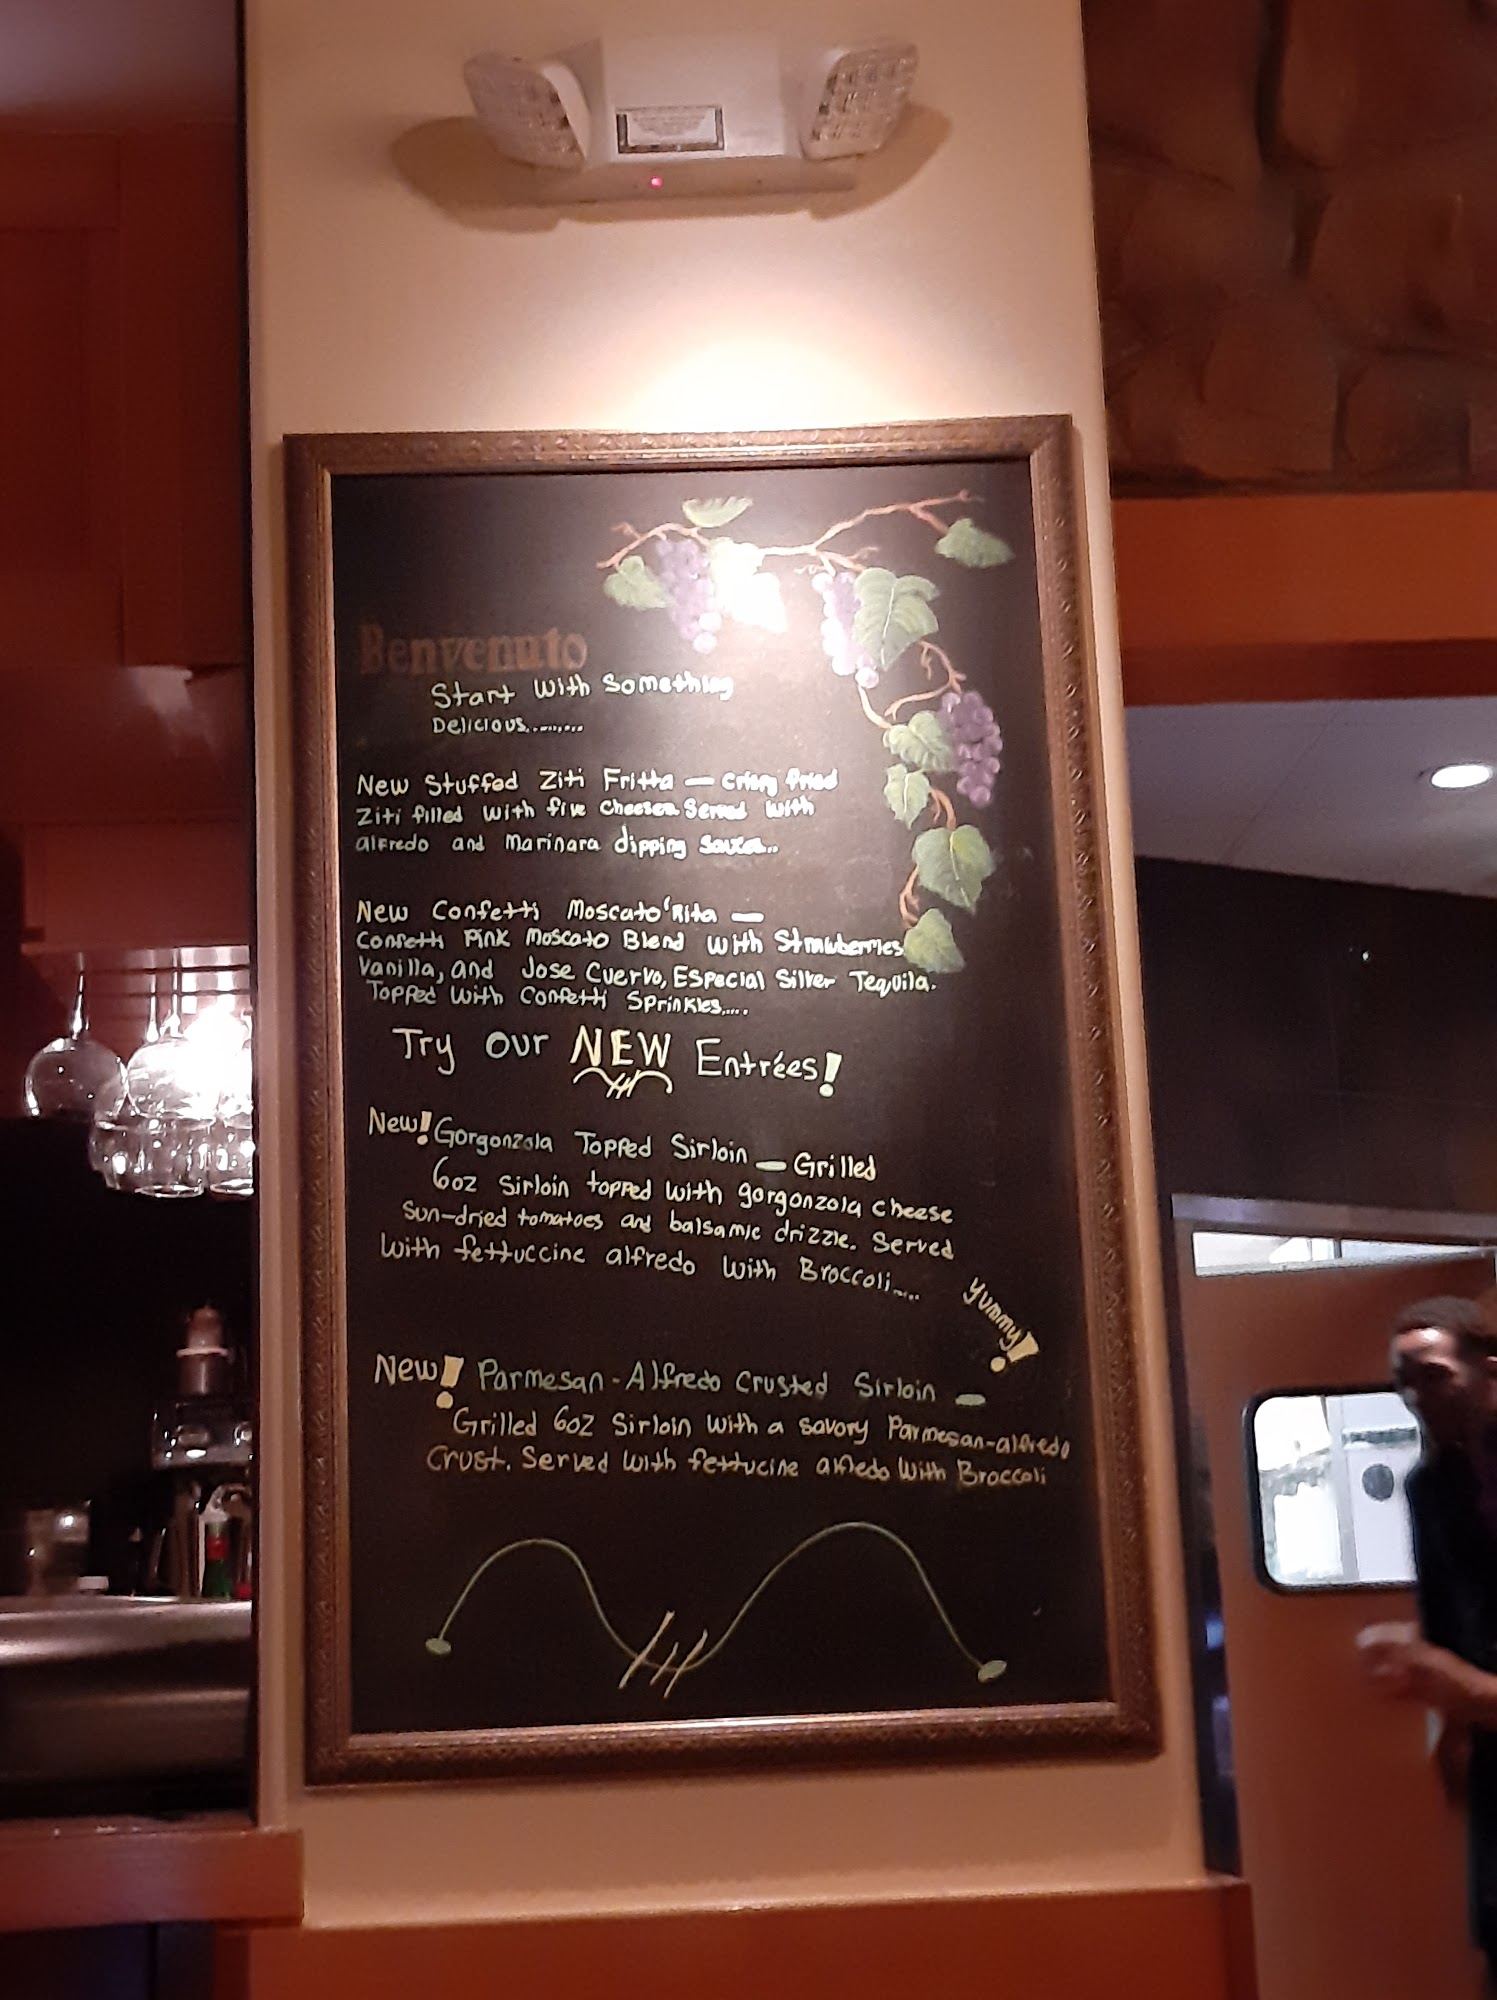 Benvenuto
Start With Something
Delicious.........
New Stuffed Ziti Fritta — Crispy fried
Ziti filled with five cheeses. Served with
alfredo and Marinara dipping sauces..
New Confetti Moscato'Rita —
Confetti Pink Moscato Blend with Strawberries
Vanilla, and Jose Cuervo, Especial Silver Tequila.
Topped with Confetti Sprinkles.....
Try Our NEW Entrées!
New! Gorgonzola Topped Sirloin — Grilled
6oz Sirloin topped with gorgonzola cheese
Sun-dried tomatoes and balsamic drizzle. Served
With fettuccine alfredo with Broccoli.....
Yummy!
New! Parmesan-Alfredo Crusted Sirloin —
Grilled 6oz Sirloin with a savory Parmesan-alfredo
Crust. Served with fettucine alfredo with Broccoli